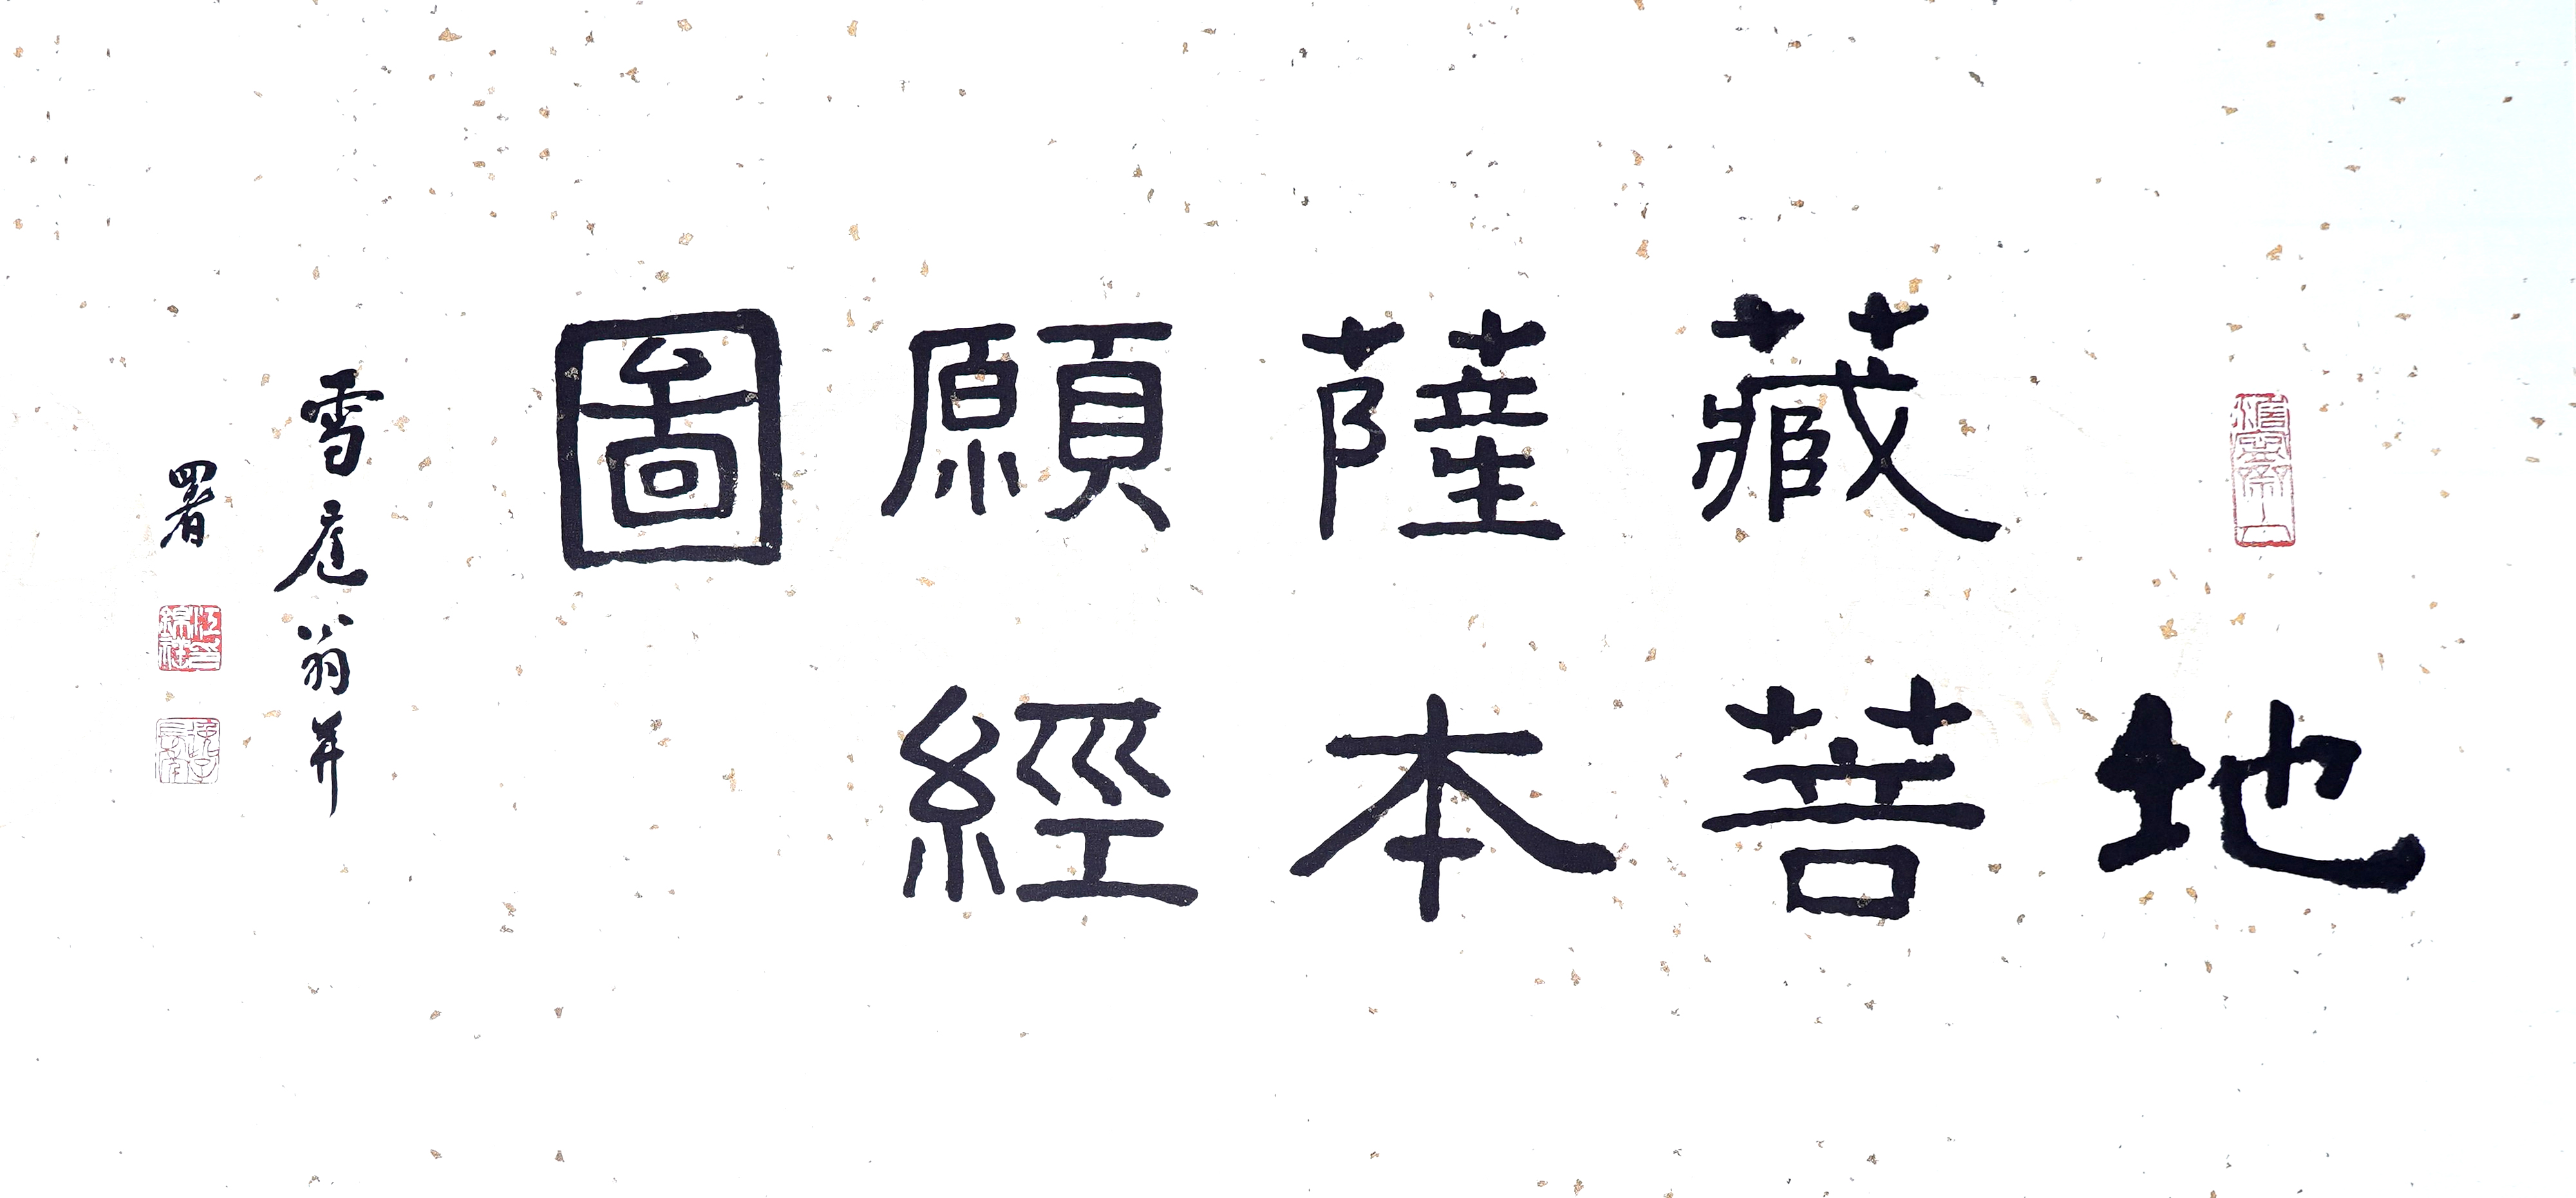 地
藏菩
薩本
願經
圖
雪庵翁并
署